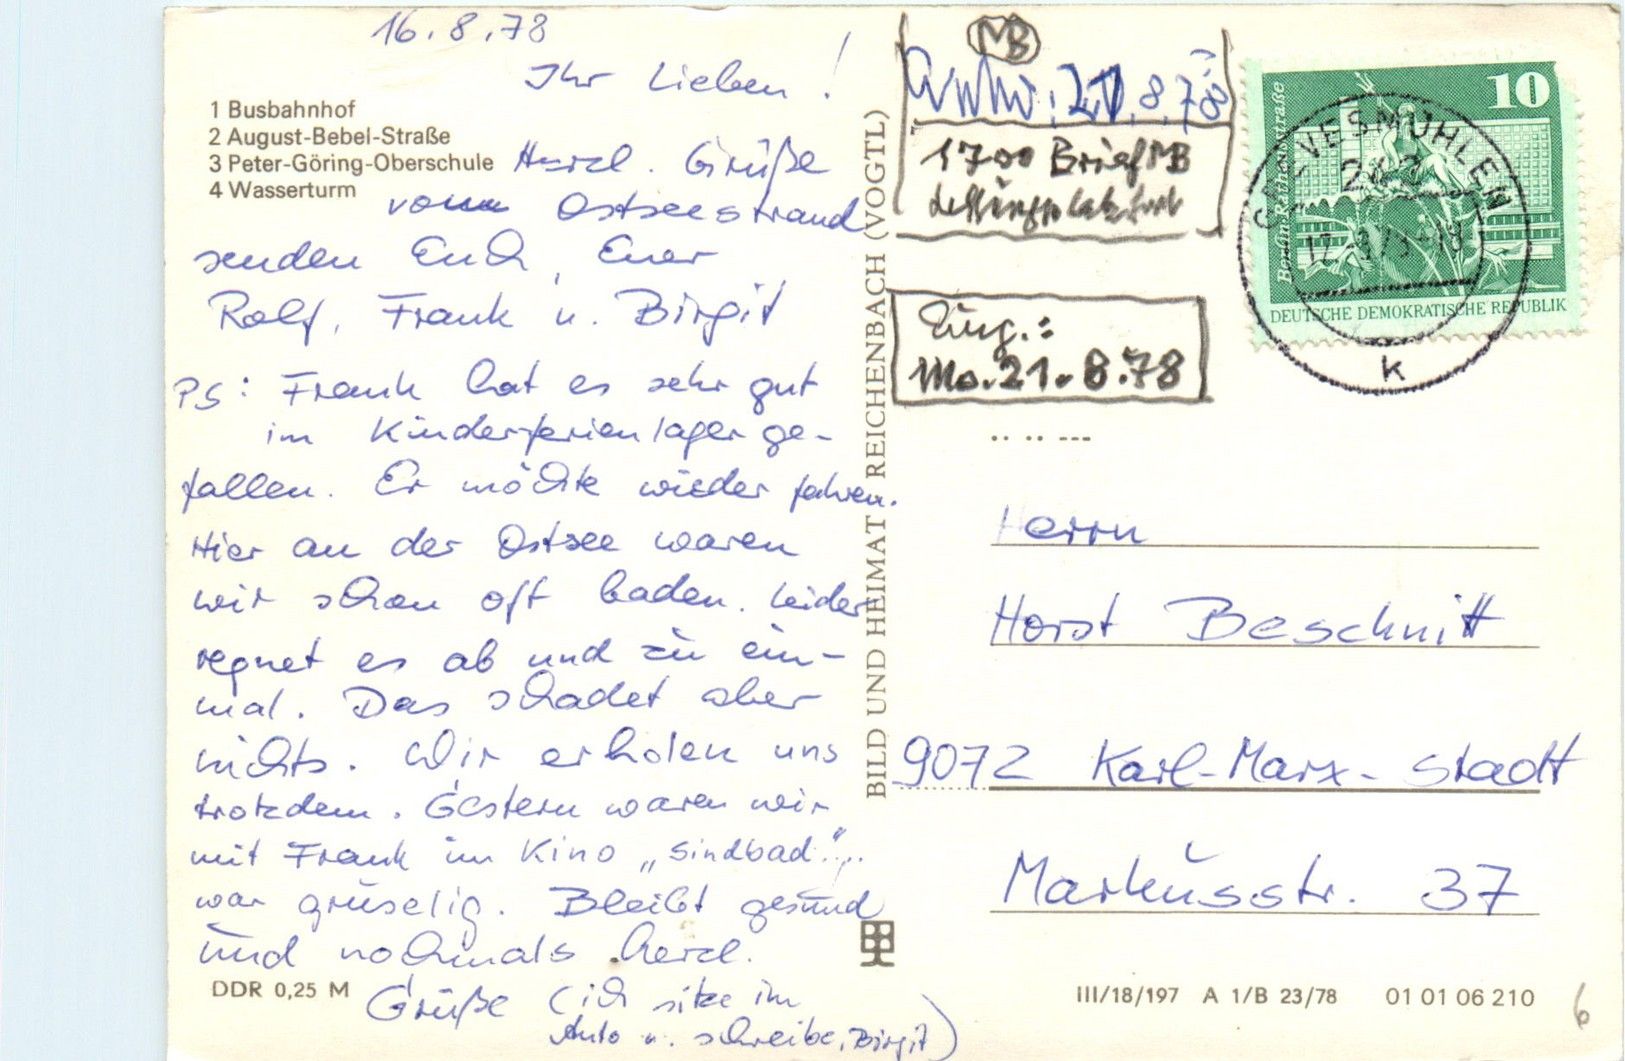 16.8.78
Ihr Lieben!
1 Busbahnhof
2 August-Bebel-Straße
3 Peter-Göring-Oberschule
4 Wasserturm
Herzl. Grüße
vom Ostseestrand
senden Euch, Euer
Rolf, Frank u. Birgit
PS: Frank hat es sehr gut
im Kinderferienlager ge-
fallen. Er möchte wieder fahren.
Hier an der Ostsee waren
wir schon oft baden. Leider
regnet es ab und zu ein-
mal. Das schadet aber
nichts. Wir erholen uns
trotzdem. Gestern waren wir
mit Frank im Kino „Sindbad"...
war gruselig. Bleibt gesund
und nochmals herzl.
Grüße (ich sitze im
Auto u. schreibe, Birgit)
DDR 0,25 M
BILD UND HEIMAT REICHENBACH (VOGTL)
MB
21.8.78
1700 Brief MB
Eing.:
Mo. 21.8.78
10
Berlin-Rathausstraße
DEUTSCHE DEMOKRATISCHE REPUBLIK
GREVESMÜHLEN
k
Herrn
Horst Beschnitt
9072 Karl-Marx-Stadt
Markusstr. 37
III/18/197 A 1/B 23/78 01 01 06 210
6